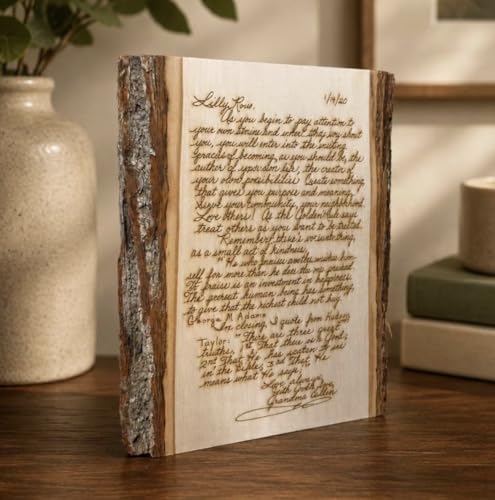 Lilly Rose, 1/4/20
As you begin to pay attention to
your own stories and what they say about
you, you will enter into the exciting
process of becoming, as you should be, the
author of your own life, the creator of
your own possibilities. Create something
that gives you purpose and meaning,
serve your community, your neighborhood
Love others! As the Golden Rule says
treat others as you want to be treated.
Remember there's no such thing,
as a small act of kindness.
"He who praises another enriches him
self for more than he does the one praised.
To praise is an investment in happiness.
The poorest human being has something,
to give that the richest could not buy.
George M. Adams
In closing, I quote from Hudson
Taylor: "There are three great
truths, 1st That there is a God;
2nd That He has spoken to us
in the Bible; 3rd That He
means what He says."
Love always
With Love
Grandma Cullen